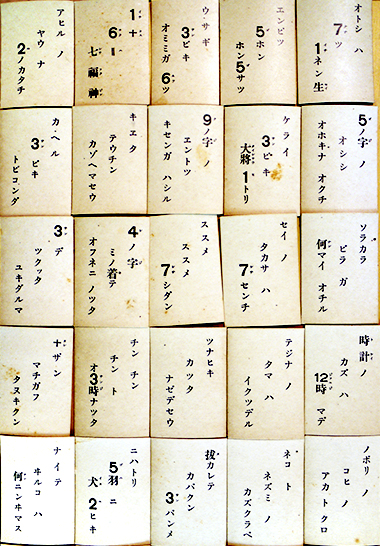 オトシ ハ
7ツ
1ネン生
エンピツ
5ホン
ホン5サツ
ウサギ
3ビキ
オミミガ
6ツ
1+
6=
七福神
アヒル ノ
ヤウ ナ
2ノカタチ
5ノ字 ノ
オシシ
オホキナ オクチ
ケライ
3ビキ
大將 1トリ
9ノ字 ノ
エントツ
キセンガ ハシル
キエタ
テウチン
カゾヘマセウ
カヘル
3ビキ
トビコンダ
ソラカラ
ビラ ガ
何マイ オチル
セイ ノ
タカサ ハ
7センチ
ススメ
ススメ
7シダン
4ノ字
ミノ着テ
オフネニ ノツタ
3 デ
ツクッタ
ユキダルマ
時計 ノ
カズ ハ
12時 マデ
テジナ ノ
タマ ハ
イクツデル
ツナヒキ
カツタ
ナゼデセウ
チン チン
チン ト
オ3時ナツタ
+ザン
マチガフ
タヌキクン
ノボリ ノ
コヒノ
アカ トクロ
ネコ ト
ネズミ ノ
カズクラベ
拔カレテ
カバクン
3バンメ
ニハトリ
5羽 ニ
犬 2ヒキ
ナイテ
ヰルコ ハ
何ニンヰマス